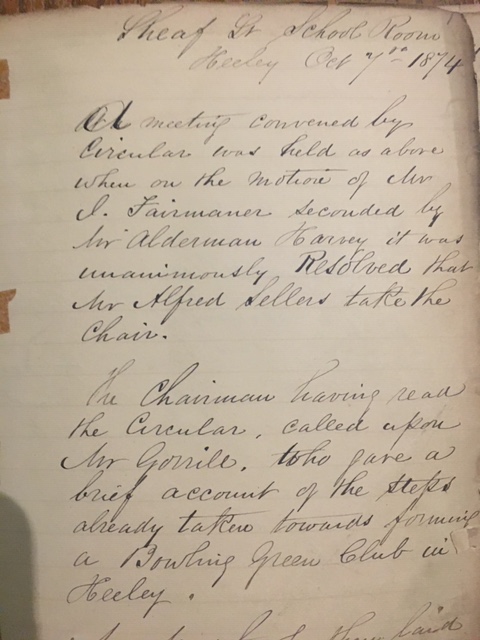 Sheaf St School Room
Heeley Oct 7th 1874
A meeting convened by
Circular was held as above
when on the motion of Mr
I. Fairmaner seconded by
Mr Alderman Harvey it was
unanimously Resolved that
Mr Alfred Sellers take the
Chair.
The Chairman having read
the Circular, called upon
Mr Gorrill, who gave a
brief account of the steps
already taken towards forming
a Bowling Green Club in
Heeley.
laid